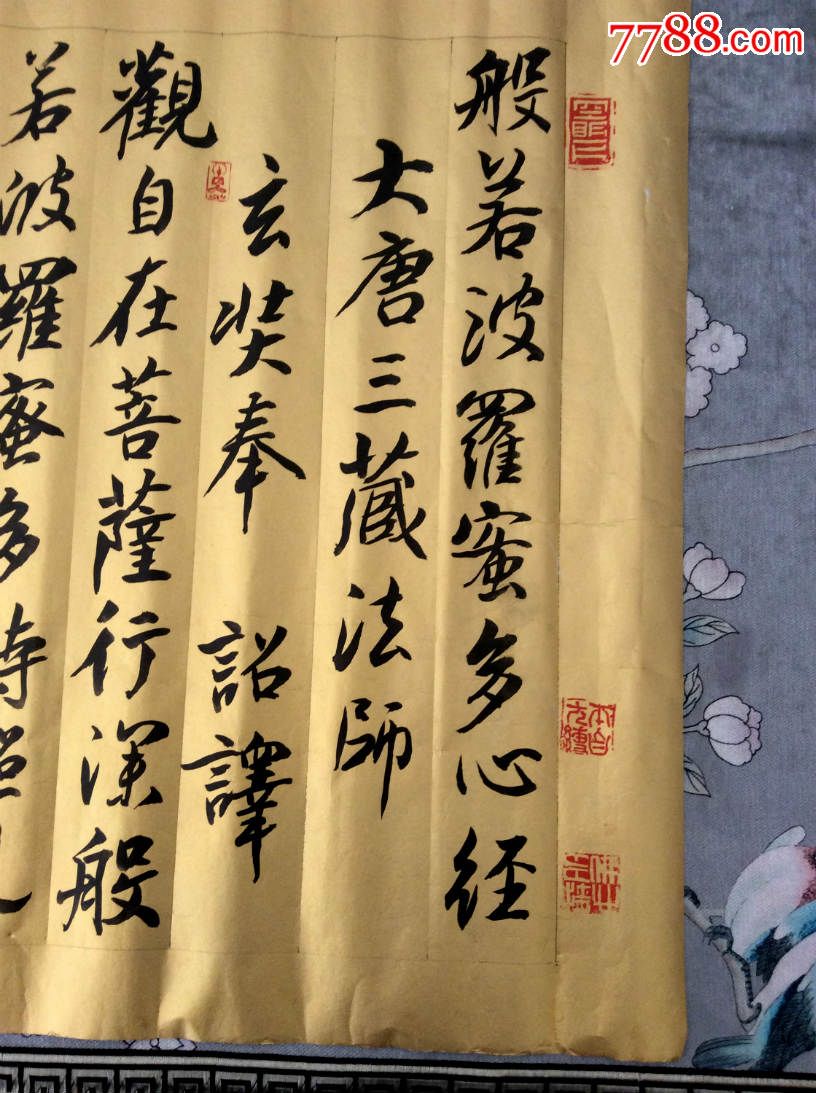 7788.com
般若波羅蜜多心経
大唐三藏法師
玄奘奉 詔譯
觀自在菩薩行深般
若波羅蜜多時照見